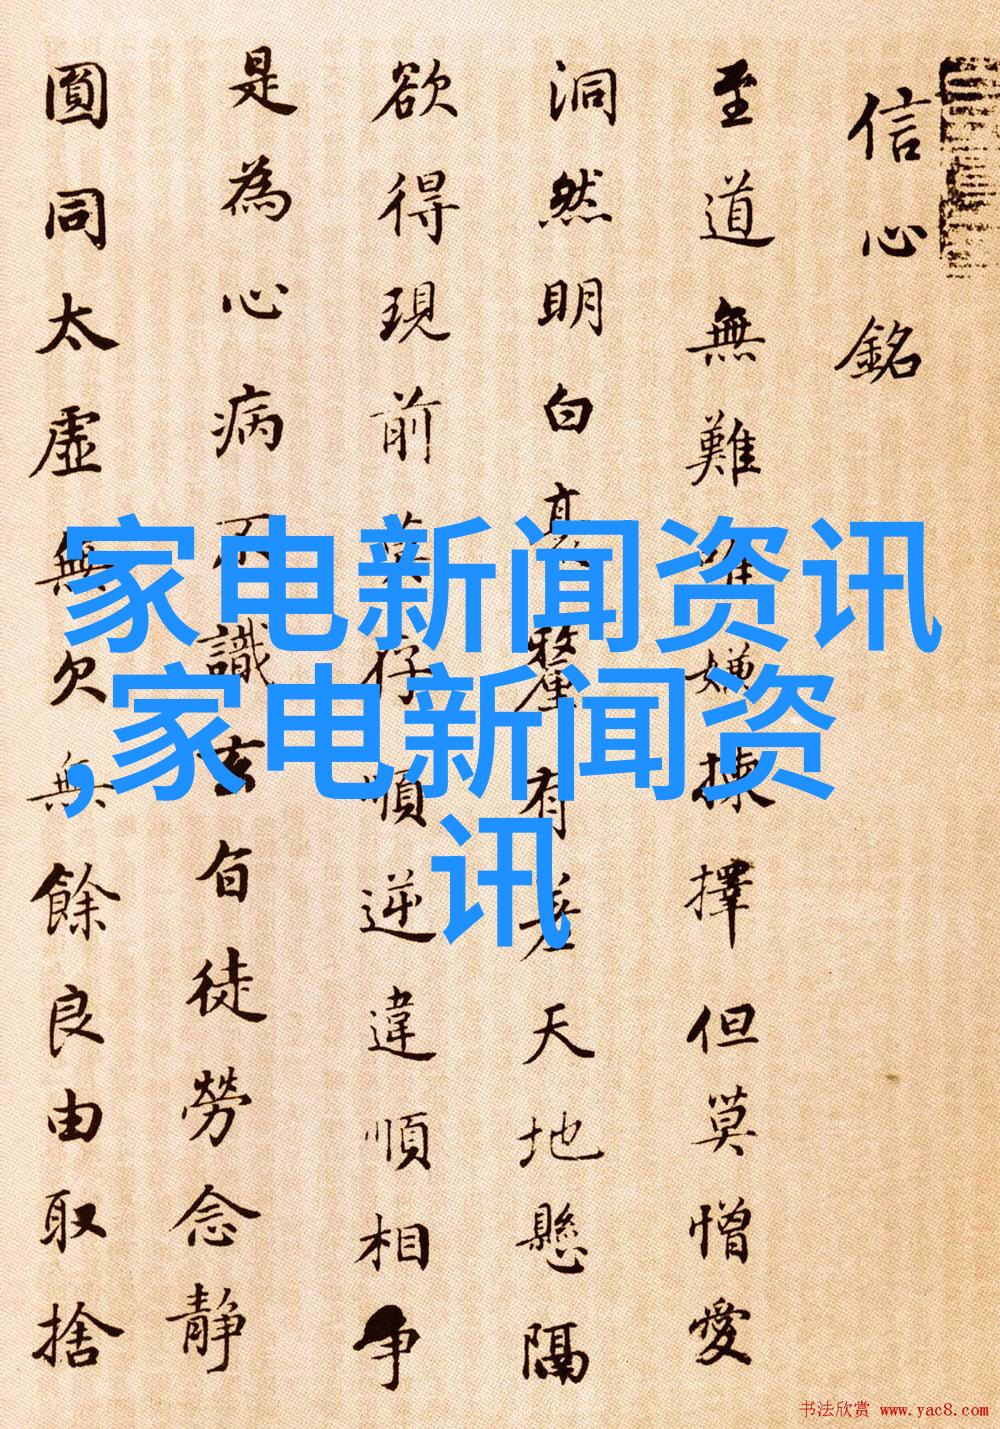 信心銘
至道無難唯嫌揀擇但莫憎愛
洞然明白毫釐有差天地懸隔
欲得現前莫存順逆違順相爭
是為心病不識玄旨徒勞念静
圓同太虛無欠無餘良由取捨
家电新闻资讯
,家电新闻资
讯
书法欣赏 www.yac8.com